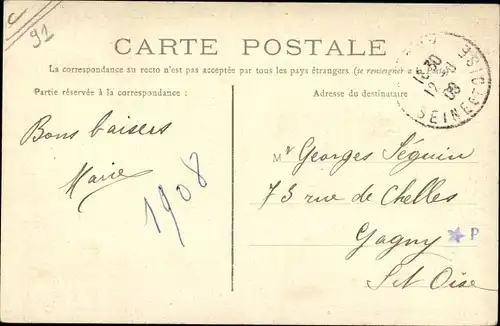 91
CARTE POSTALE
La correspondance au recto n'est pas acceptée par tous les pays étrangers (se renseigner à la poste)
Partie réservée à la correspondance :
Adresse du destinataire
SEINE ET OISE
Bons baisers
Marie
1908
Mr Georges Séguin
73 rue de Chelles
Gagny
P
S et Oise